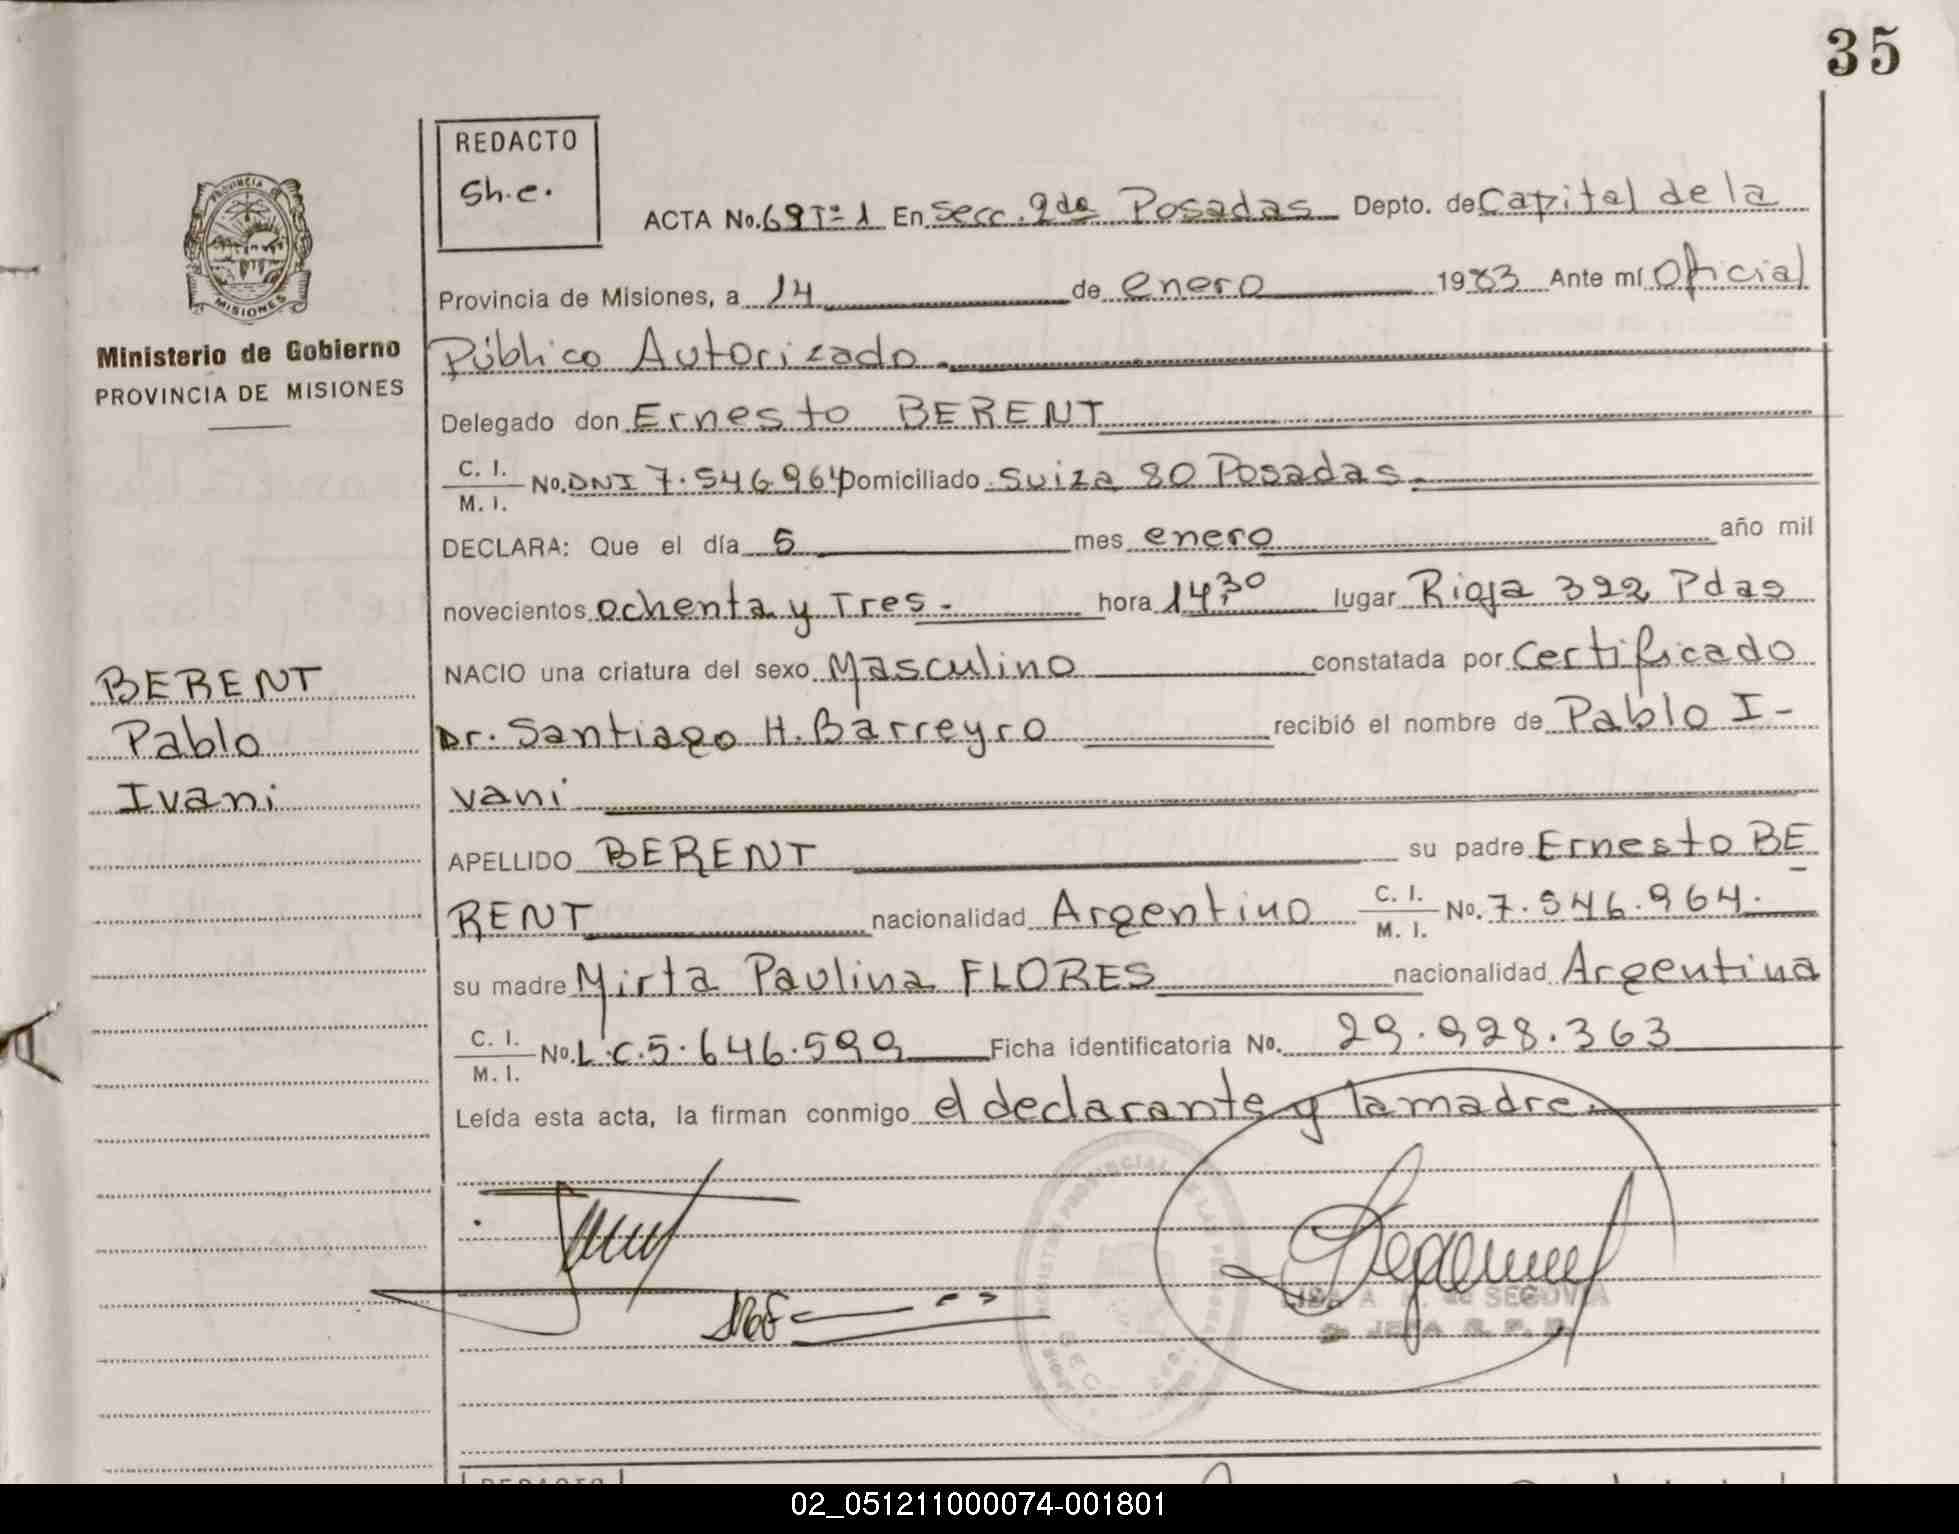 35
REDACTO
Sh.e.
ACTA No. 69 Tº 1 En Secc. 2da Posadas Depto. de Capital de la
Provincia de Misiones, a 14 de enero 1983 Ante mí Oficial
PROVINCIA DE
MISIONES
Ministerio de Gobierno
PROVINCIA DE MISIONES
Público Autorizado.
Delegado don Ernesto BERENT
C. I.
M. I.
No. DNI 7.546.964 Domiciliado Suiza 80 Posadas.
DECLARA: Que el día 5 mes enero año mil
novecientos ochenta y Tres. hora 14,30 lugar Rioja 322 Pdas
NACIO una criatura del sexo Masculino constatada por Certificado
BERENT
Pablo
Ivani
Dr. Santiago H. Barreyro recibió el nombre de Pablo I-
vani
APELLIDO BERENT su padre Ernesto BE
RENT nacionalidad Argentino C. I. M. I. No. 7.546.964.
su madre Mirta Paulina FLORES nacionalidad Argentina
C. I.
M. I.
No. L.C. 5.646.599 Ficha identificatoria No. 29.928.363
Leída esta acta, la firman conmigo el declarante y la madre.
de SEGOVIA
JEFA R. P. P.
REDACTO
02_051211000074-001801